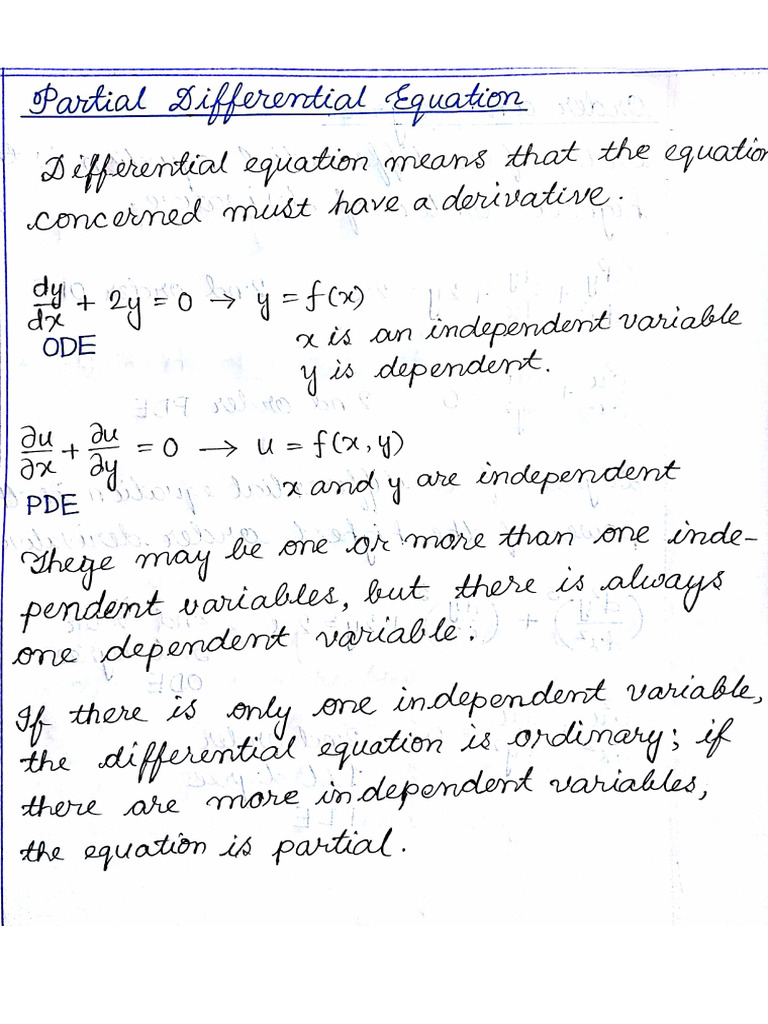 Partial Differential Equation
Differential equation means that the equation
concerned must have a derivative.
dy/dx + 2y = 0 → y = f(x)
x is an independent variable
ODE
y is dependent.
∂u/∂x + ∂u/∂y = 0 → u = f(x, y)
x and y are independent
PDE
There may be one or more than one inde-
pendent variables, but there is always
one dependent variable.
If there is only one independent variable,
the differential equation is ordinary; if
there are more independent variables,
the equation is partial.